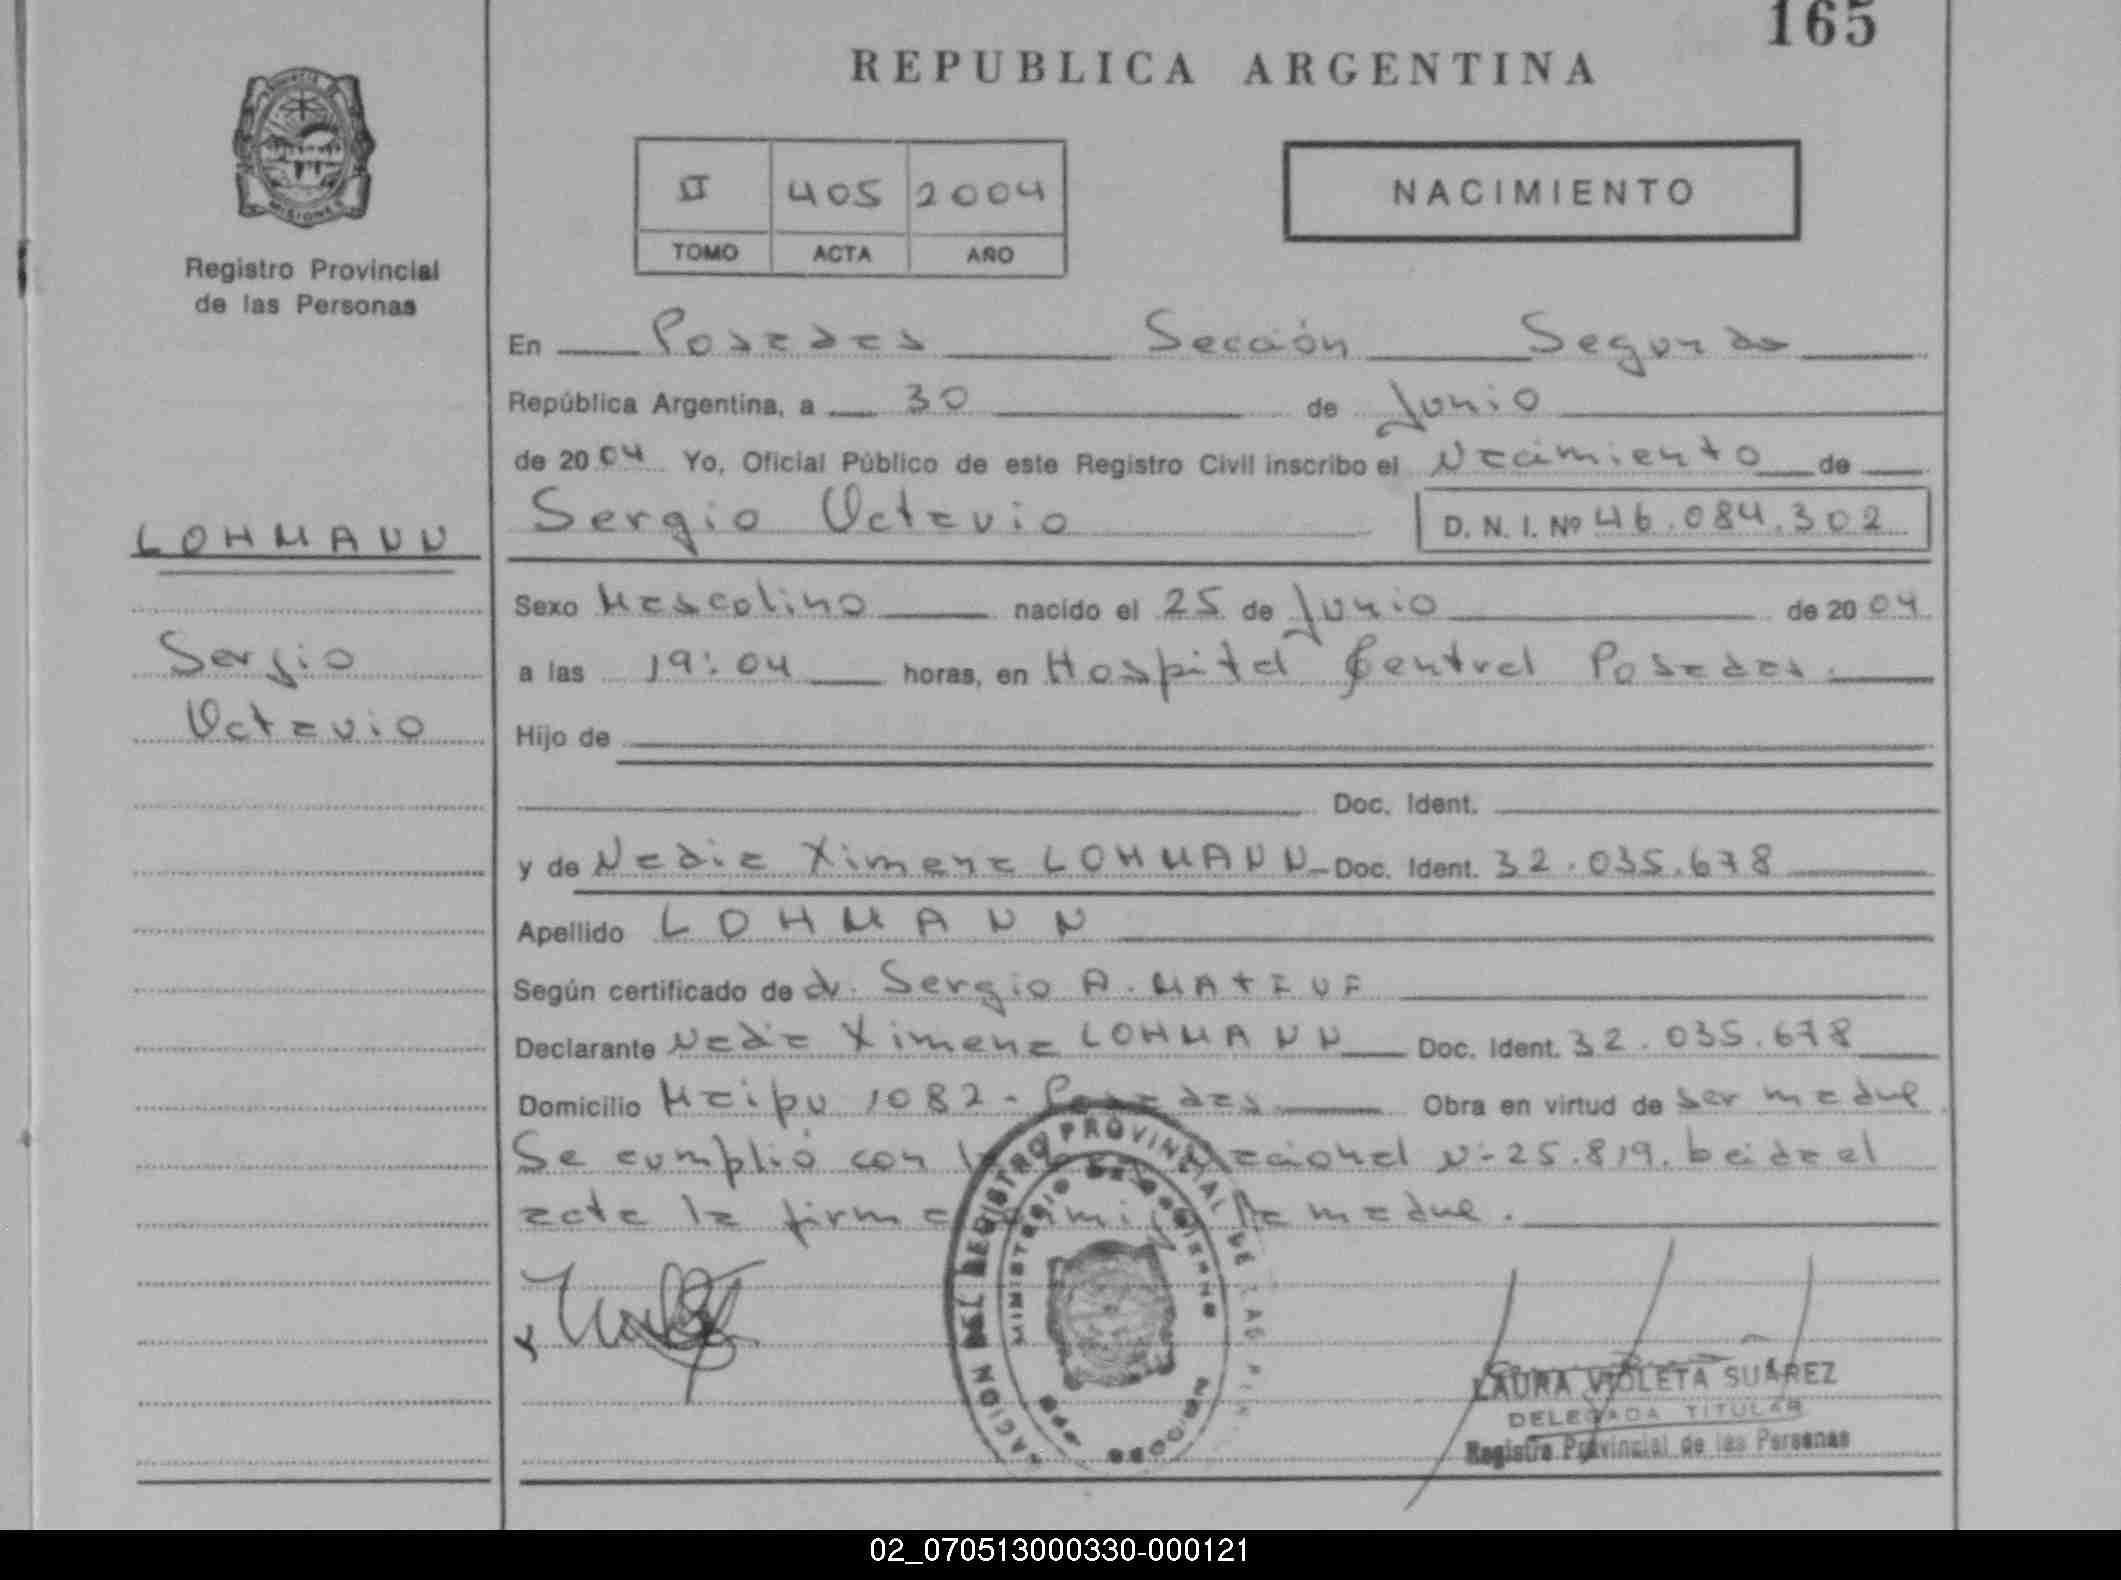 165
REPUBLICA ARGENTINA
MISIONES
Registro Provincial
de las Personas
II 405 2004
TOMO ACTA AÑO
NACIMIENTO
En Posadas Sección Segunda
República Argentina, a 30 de Junio
de 2004 Yo, Oficial Público de este Registro Civil inscribo el Nacimiento de
LOHMANN
Sergio Octavio D. N. I. Nº 46.084.302
Sexo Masculino nacido el 25 de Junio de 2004
Sergio
a las 19:04 horas, en Hospital Central Posadas.
Octavio
Hijo de
Doc. Ident.
y de Nadia Ximena LOHMANN Doc. Ident. 32.035.678
Apellido LOHMANN
Según certificado de dr. Sergio A.
Declarante Nadia Ximena LOHMANN Doc. Ident. 32.035.678
Domicilio Maipu 1082 - Posadas Obra en virtud de ser madre
Se cumplió con la nacional Nº 25.819. leida el
acta la firma la madre.
REGISTRO PROVINCIAL DE LAS
MINISTERIO DE GOBIERNO
LAURA VIOLETA SUAREZ
DELEGADA TITULAR
Registro Provincial de las Personas
02_070513000330-000121